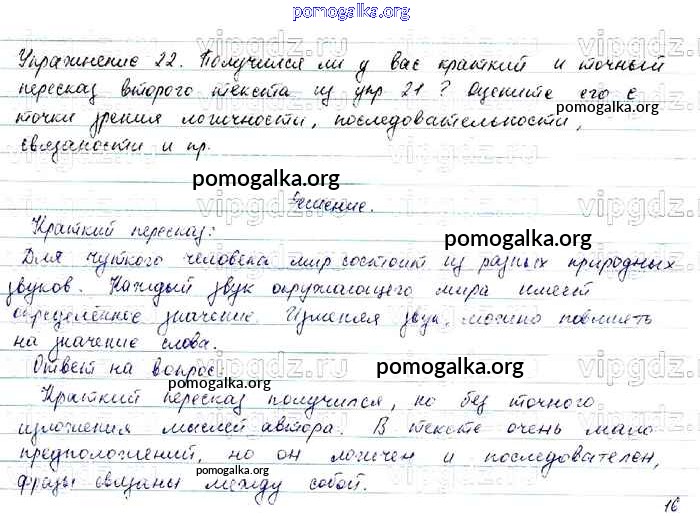 pomogalka.org
Упражнение 22. Получился ли у вас краткий и точный
пересказ второго текста из упр 21? Оцените его с
pomogalka.org
точки зрения логичности, последовательности,
связаности и пр.
pomogalka.org
Решение.
Краткий пересказ:
pomogalka.org
Для чуткого человека мир состоит из разных природных
звуков. Каждый звук окружающего мира имеет
определённое значение. Изменяя звук, можно повлиять
на значение слова.
Ответ на вопрос:
pomogalka.org
pomogalka.org
Краткий пересказ получился, но без точного
изложения мыслей автора. В тексте очень мало
предположений, но он логичен и последователен,
pomogalka.org
фразы связаны между собой.
16
vipgdz.ru